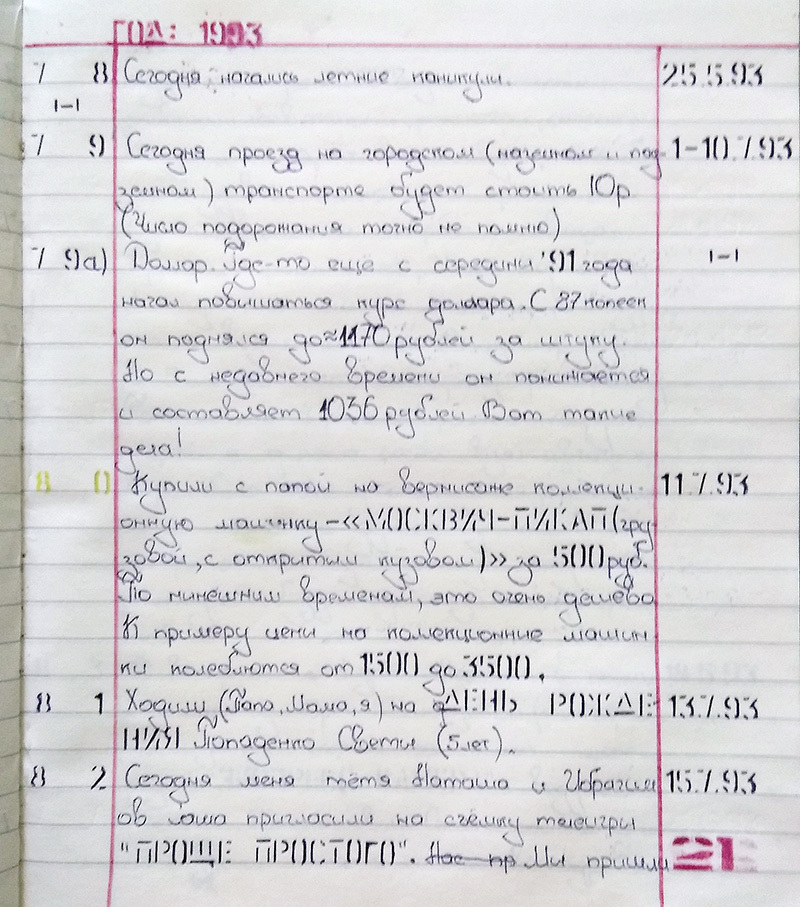 ГОД: 1993
7 8 Сегодня начались летние каникулы. 25.5.93
1-1
7 9 Сегодня проезд на городском (наземном и под 1-10.7.93
земном) транспорте будет стоить 10р
(Число подорожания точно не помню)
7 9а) Доллар. Где-то ещё с середины '91 года 1-1
начал повышаться курс доллара. С 87 копеек
он поднялся до ≈1170 рублей за штуку.
Но с недавнего времени он понижается
и составляет 1036 рублей Вот такие
дела!
8 0 Купили с папой на вернисаже коллекци- 11.7.93
онную машинку - «МОСКВИЧ-ПИКАП (гру
зовой, с открытым кузовом)» за 500 руб.
По нынешним временам, это очень дёшево
К примеру цены на коллекционные машин
ки колеблются от 1500 до 3500.
8 1 Ходили (Папа, Мама, я) на ДЕНЬ РОЖДЕ 13.7.93
НИЯ Попаденко Светы (5 лет).
8 2 Сегодня меня тётя Наташа и Ибрагим 15.7.93
ов пригласили на съёмку телеигры
"ПРОЩЕ ПРОСТОГО". Нас пр Мы пришли
21